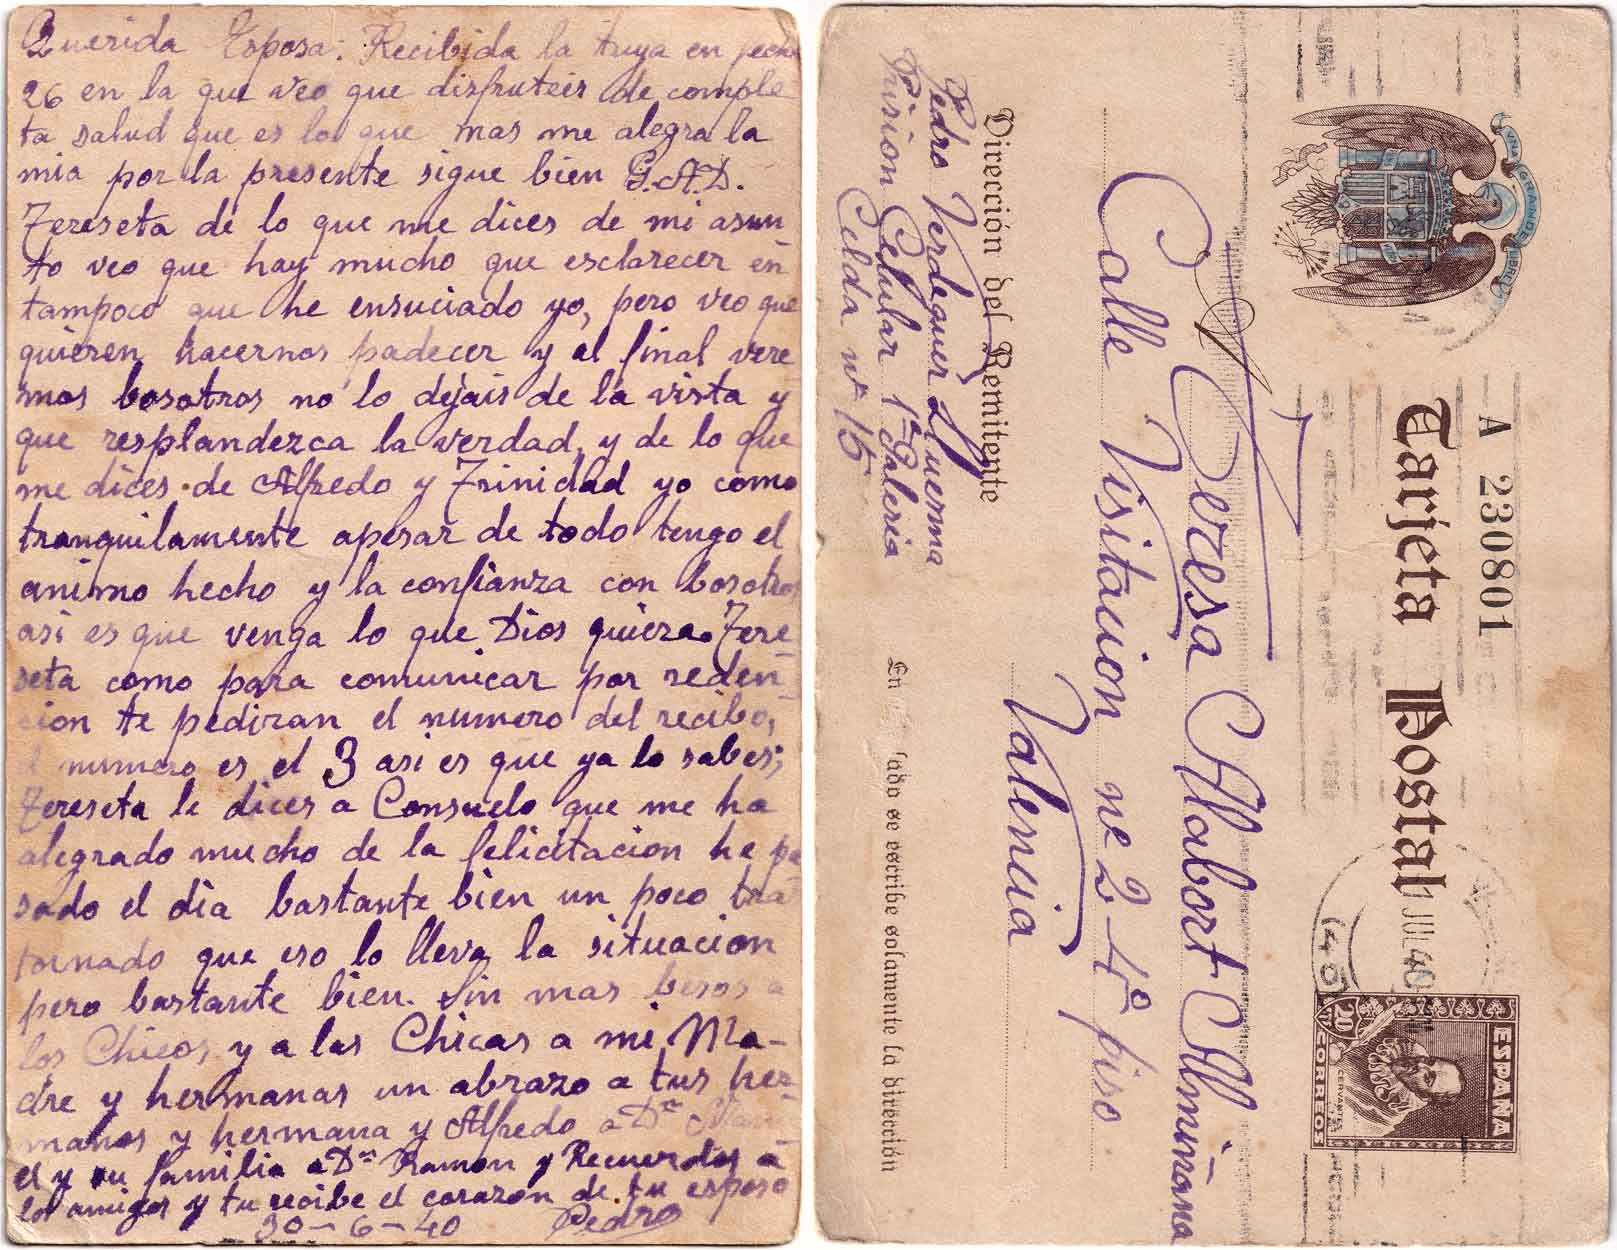 Querida Esposa: Recibida la tuya en fecha
26 en la que veo que disfruteis de comple
ta salud que es lo que mas me alegra la
mia por la presente sigue bien G.A.D.
Tereseta de lo que me dices de mi asun
to veo que hay mucho que esclarecer en
tampoco que he ensuciado yo, pero veo que
quieren hacernos padecer y al final vere
mos bosotros no lo dejais de la vista y
que resplandezca la verdad, y de lo que
me dices de Alfredo y Trinidad yo como
tranquilamente apesar de todo tengo el
animo hecho y la confianza con bosotros
asi es que venga lo que Dios quiera. Tere-
seta como para comunicar por reden-
cion te pediran el numero del recibo,
el numero es el 3 asi es que ya lo sabes;
Tereseta le dices a Consuelo que me ha
alegrado mucho de la felicitacion he pa
sado el dia bastante bien un poco tras
tornado que eso lo lleva la situacion
pero bastante bien. Sin mas besos a
los Chicos y a las Chicas a mi Ma-
dre y hermanas un abrazo a tus her-
manos y hermana y Alfredo a Dn Manu-
el y su familia a Dn Ramon y Recuerdos a
los amigos y tu recibe el corazon de tu esposo
30-6-40 Pedro
UNA GRANDE LIBRE
A 230801
Tarjeta Postal
JUL 40
(40)
ESPAÑA
CERVANTES
20 CTS
CORREOS
A Teresa Alabort Almiñana
Calle Visitacion nº 2 4º piso
Valencia
Dirección del Remitente
Pedro Verdeguer Lluerma
Prision Celular 1ª Galeria
Celda nº 15
En lado se escribe solamente la dirección